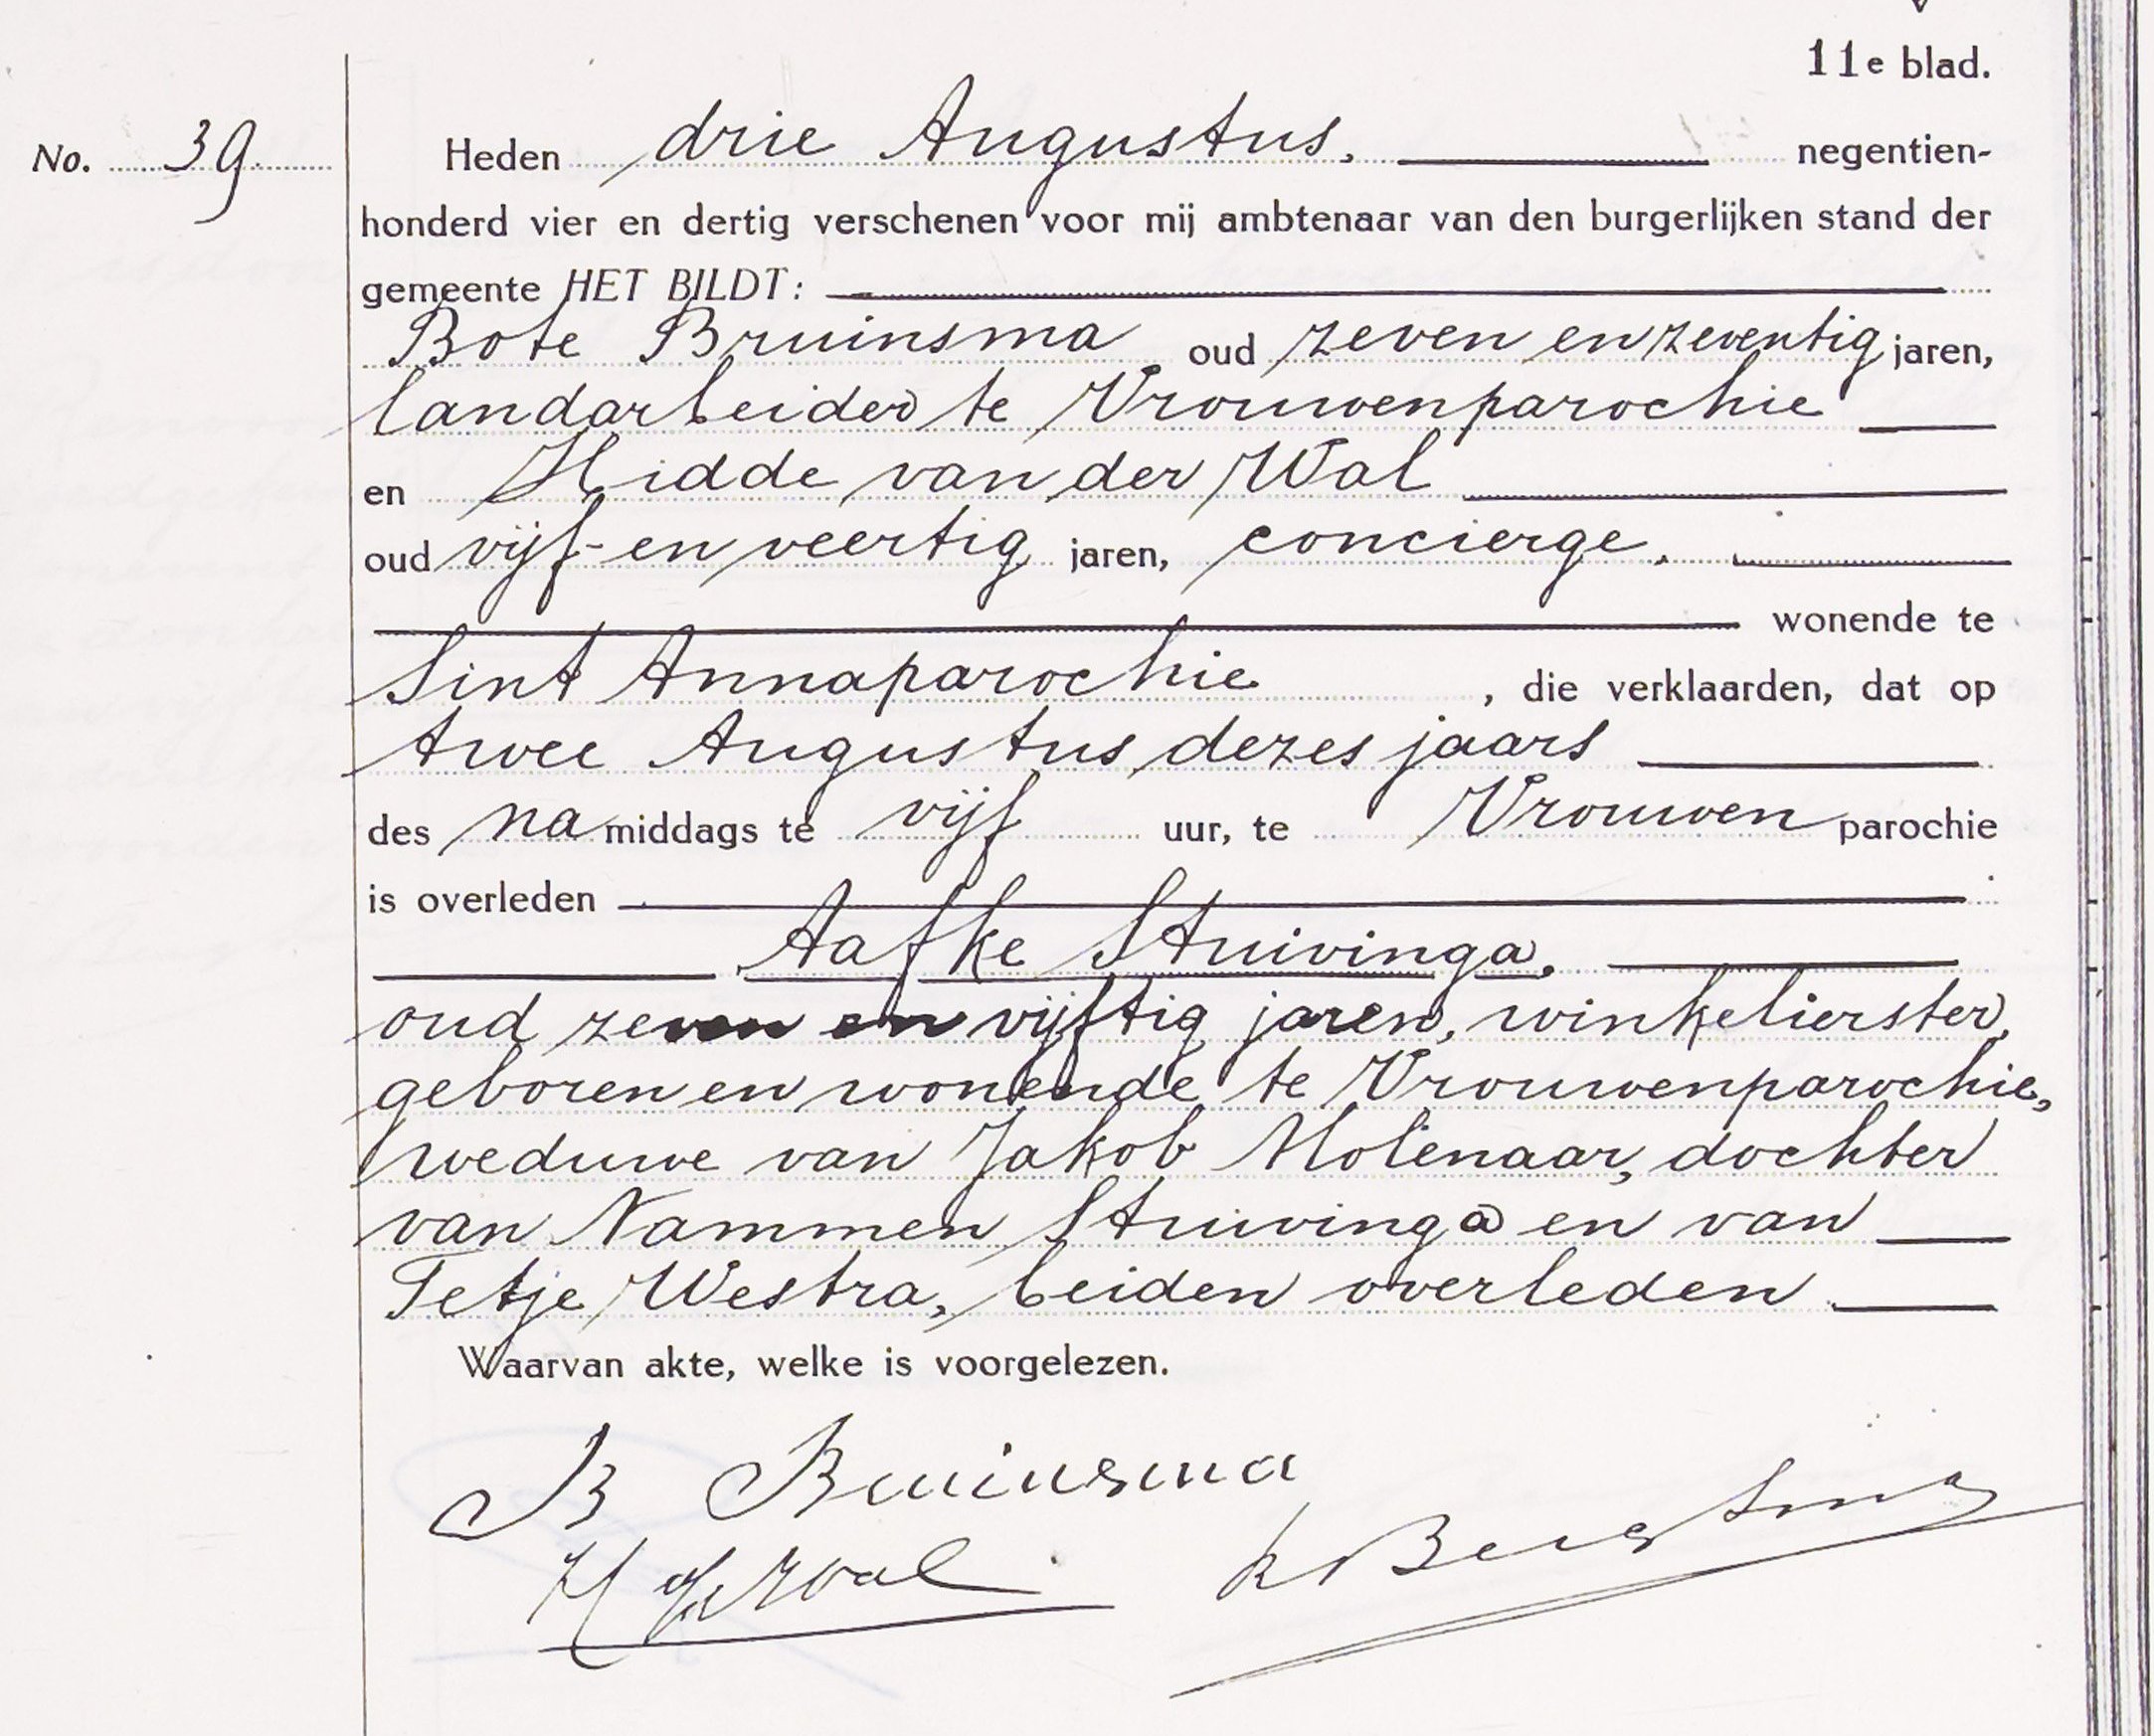 11e blad.
No. 39.
Heden drie Augustus, negentien-
honderd vier en dertig verschenen voor mij ambtenaar van den burgerlijken stand der
gemeente HET BILDT:
Bote Bruinsma oud zeven en zeventig jaren,
landarbeider te Vrouwenparochie
en Hidde van der Wal
oud vijf-en veertig jaren, concierge.
wonende te
Sint Annaparochie , die verklaarden, dat op
twee Augustus dezes jaars
des namiddags te vijf uur, te Vrouwenparochie
is overleden
Aafke Stuivinga.
oud zeven en vijftig jaren, winkelierster,
geboren en wonende te Vrouwenparochie,
weduwe van Jakob Molenaar, dochter
van Nammen Stuivinga en van
Tetje Westra, beiden overleden
Waarvan akte, welke is voorgelezen.
B Bruinsma
H vd Wal